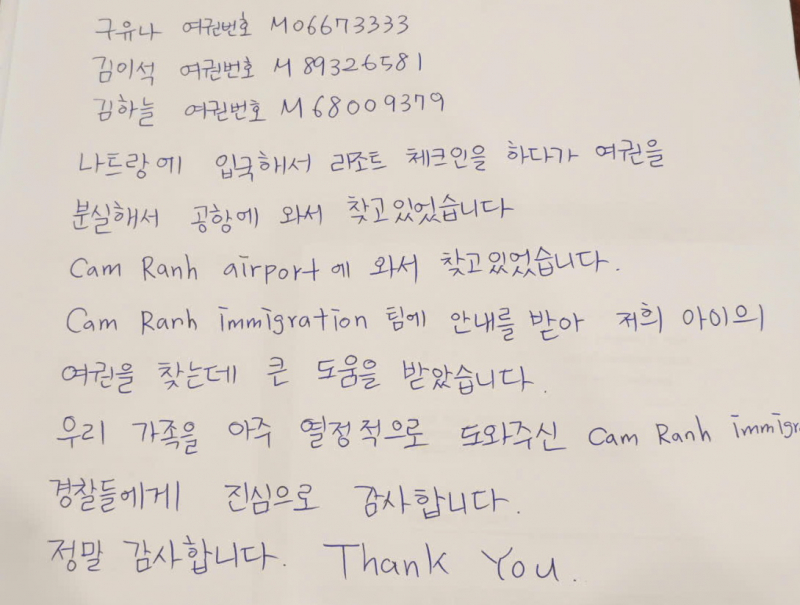 구유나 여권번호 M06673333
김이석 여권번호 M89326581
김하늘 여권번호 M68009379
나트랑에 입국해서 리조트 체크인을 하다가 여권을
분실해서 공항에 와서 찾고있었습니다
Cam Ranh airport에 와서 찾고있었습니다.
Cam Ranh immigration 팀에 안내를 받아 저희 아이의
여권을 찾는데 큰 도움을 받았습니다.
우리 가족을 아주 열정적으로 도와주신 Cam Ranh immigr
경찰들에게 진심으로 감사합니다.
정말 감사합니다. Thank You.